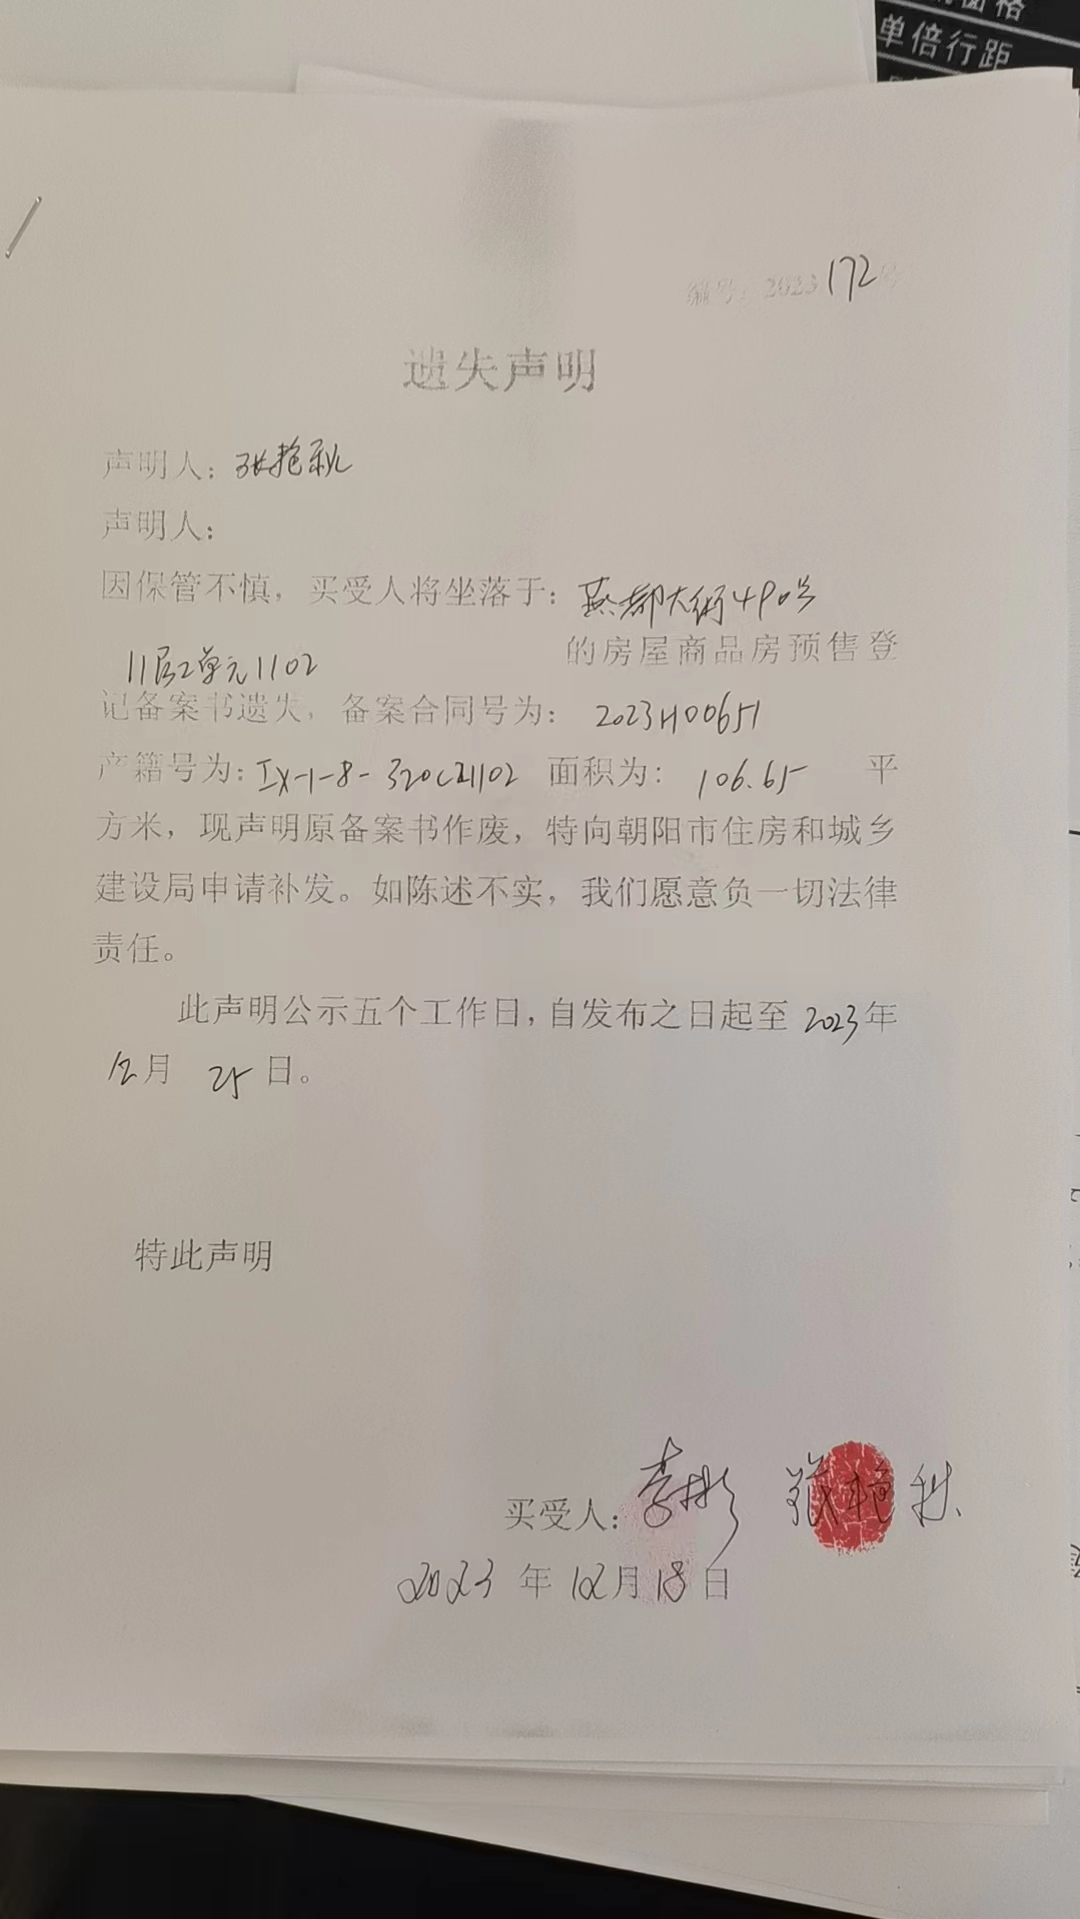 单倍行距
编号：2023 172号
遗失声明
声明人：张艳秋
声明人：
因保管不慎，买受人将坐落于：燕都大街490号
11号2单元1102 的房屋商品房预售登
记备案书遗失，备案合同号为：2023H00651
产籍号为：IX-1-8-320C21102 面积为：106.65 平
方米，现声明原备案书作废，特向朝阳市住房和城乡
建设局申请补发。如陈述不实，我们愿意负一切法律
责任。
此声明公示五个工作日，自发布之日起至 2023年
12月 25日。
特此声明
买受人：李彬 张艳秋
2023 年 12月 18日